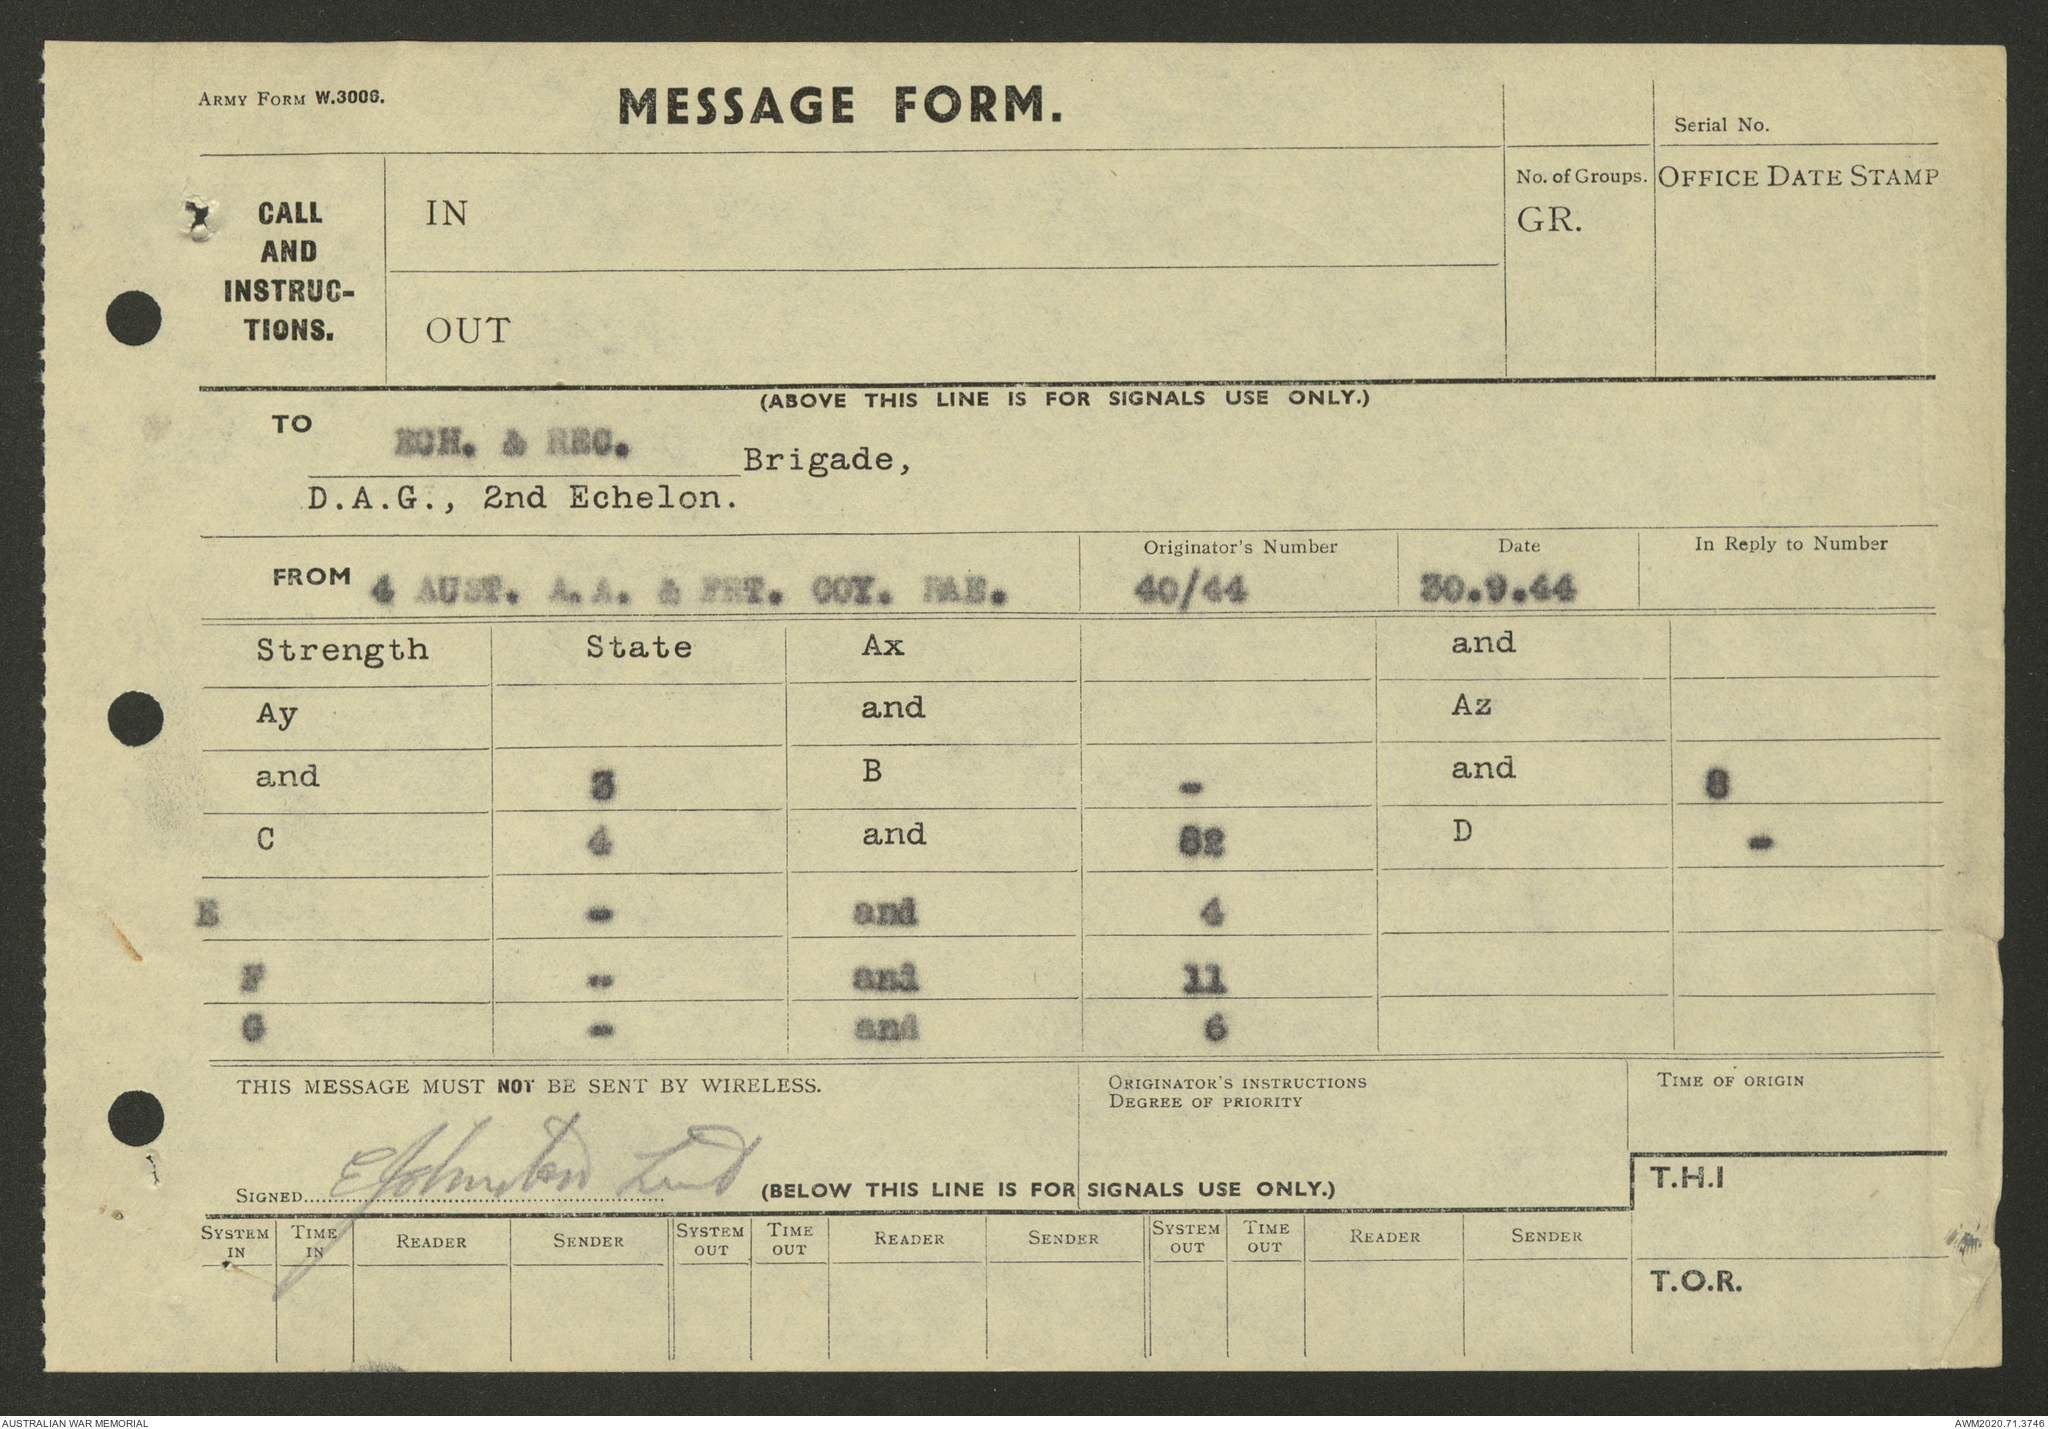 ARMY FORM W.3006.
MESSAGE FORM.
Serial No.
CALL
AND
INSTRUC-
TIONS.
IN
OUT
No. of Groups.
GR.
OFFICE DATE STAMP
(ABOVE THIS LINE IS FOR SIGNALS USE ONLY.)
TO
ECH. & REC. Brigade,
D.A.G., 2nd Echelon.
FROM 4 AUST. A.A. & FRT. COY. RAE.
Originator's Number
40/44
Date
30.9.44
In Reply to Number
Strength State Ax and
Ay and Az
and 3 B - and 8
C 4 and 82 D -
E - and 4
F - and 11
G - and 6
THIS MESSAGE MUST NOT BE SENT BY WIRELESS.
ORIGINATOR'S INSTRUCTIONS
DEGREE OF PRIORITY
TIME OF ORIGIN
SIGNED EJohnston Lieut
(BELOW THIS LINE IS FOR SIGNALS USE ONLY.)
T.H.I
SYSTEM IN TIME IN READER SENDER SYSTEM OUT TIME OUT READER SENDER SYSTEM OUT TIME OUT READER SENDER
T.O.R.
AUSTRALIAN WAR MEMORIAL
AWM2020.71.3746